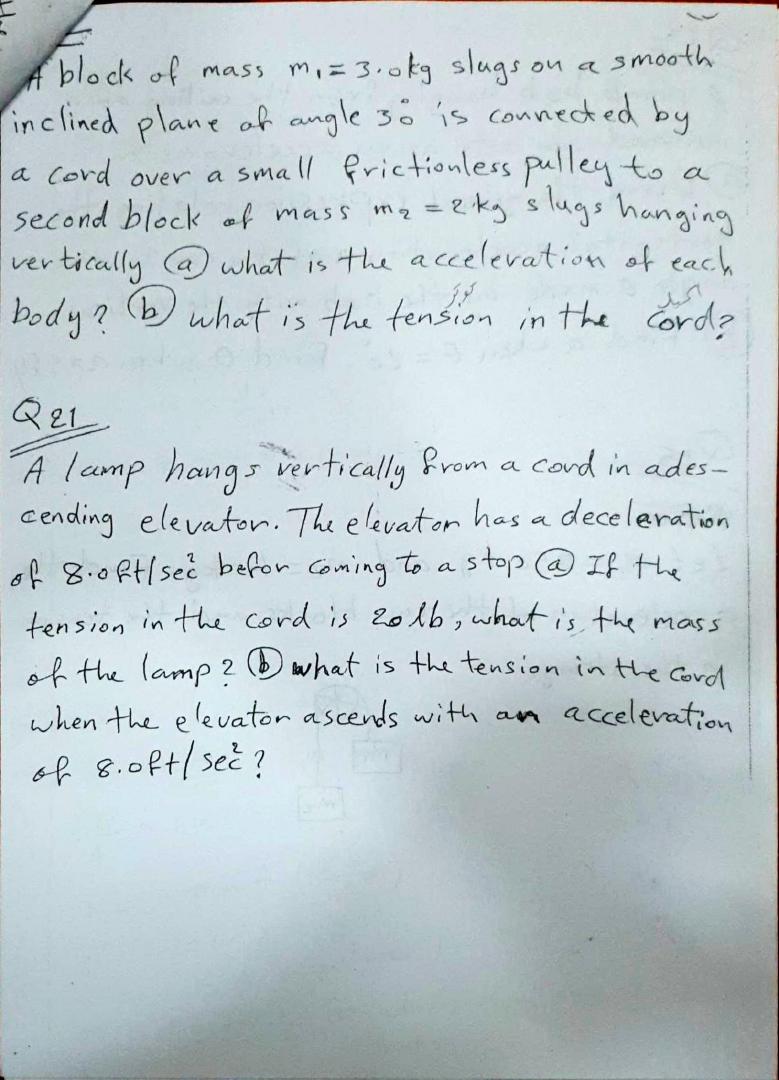 A block of mass m₁=3.0kg slugs on a smooth
inclined plane of angle 30° is connected by
a cord over a small frictionless pulley to a
second block of mass m₂=2kg slugs hanging
vertically ⓐ what is the acceleration of each
body? ⓑ what is the tension in the cord?
Q21
A lamp hangs vertically from a cord in a des-
cending elevator. The elevator has a deceleration
of 8.0ft/sec² befor coming to a stop ⓐ If the
tension in the cord is 20lb, what is the mass
of the lamp? ⓑ what is the tension in the cord
when the elevator ascends with an acceleration
of 8.0ft/sec²?